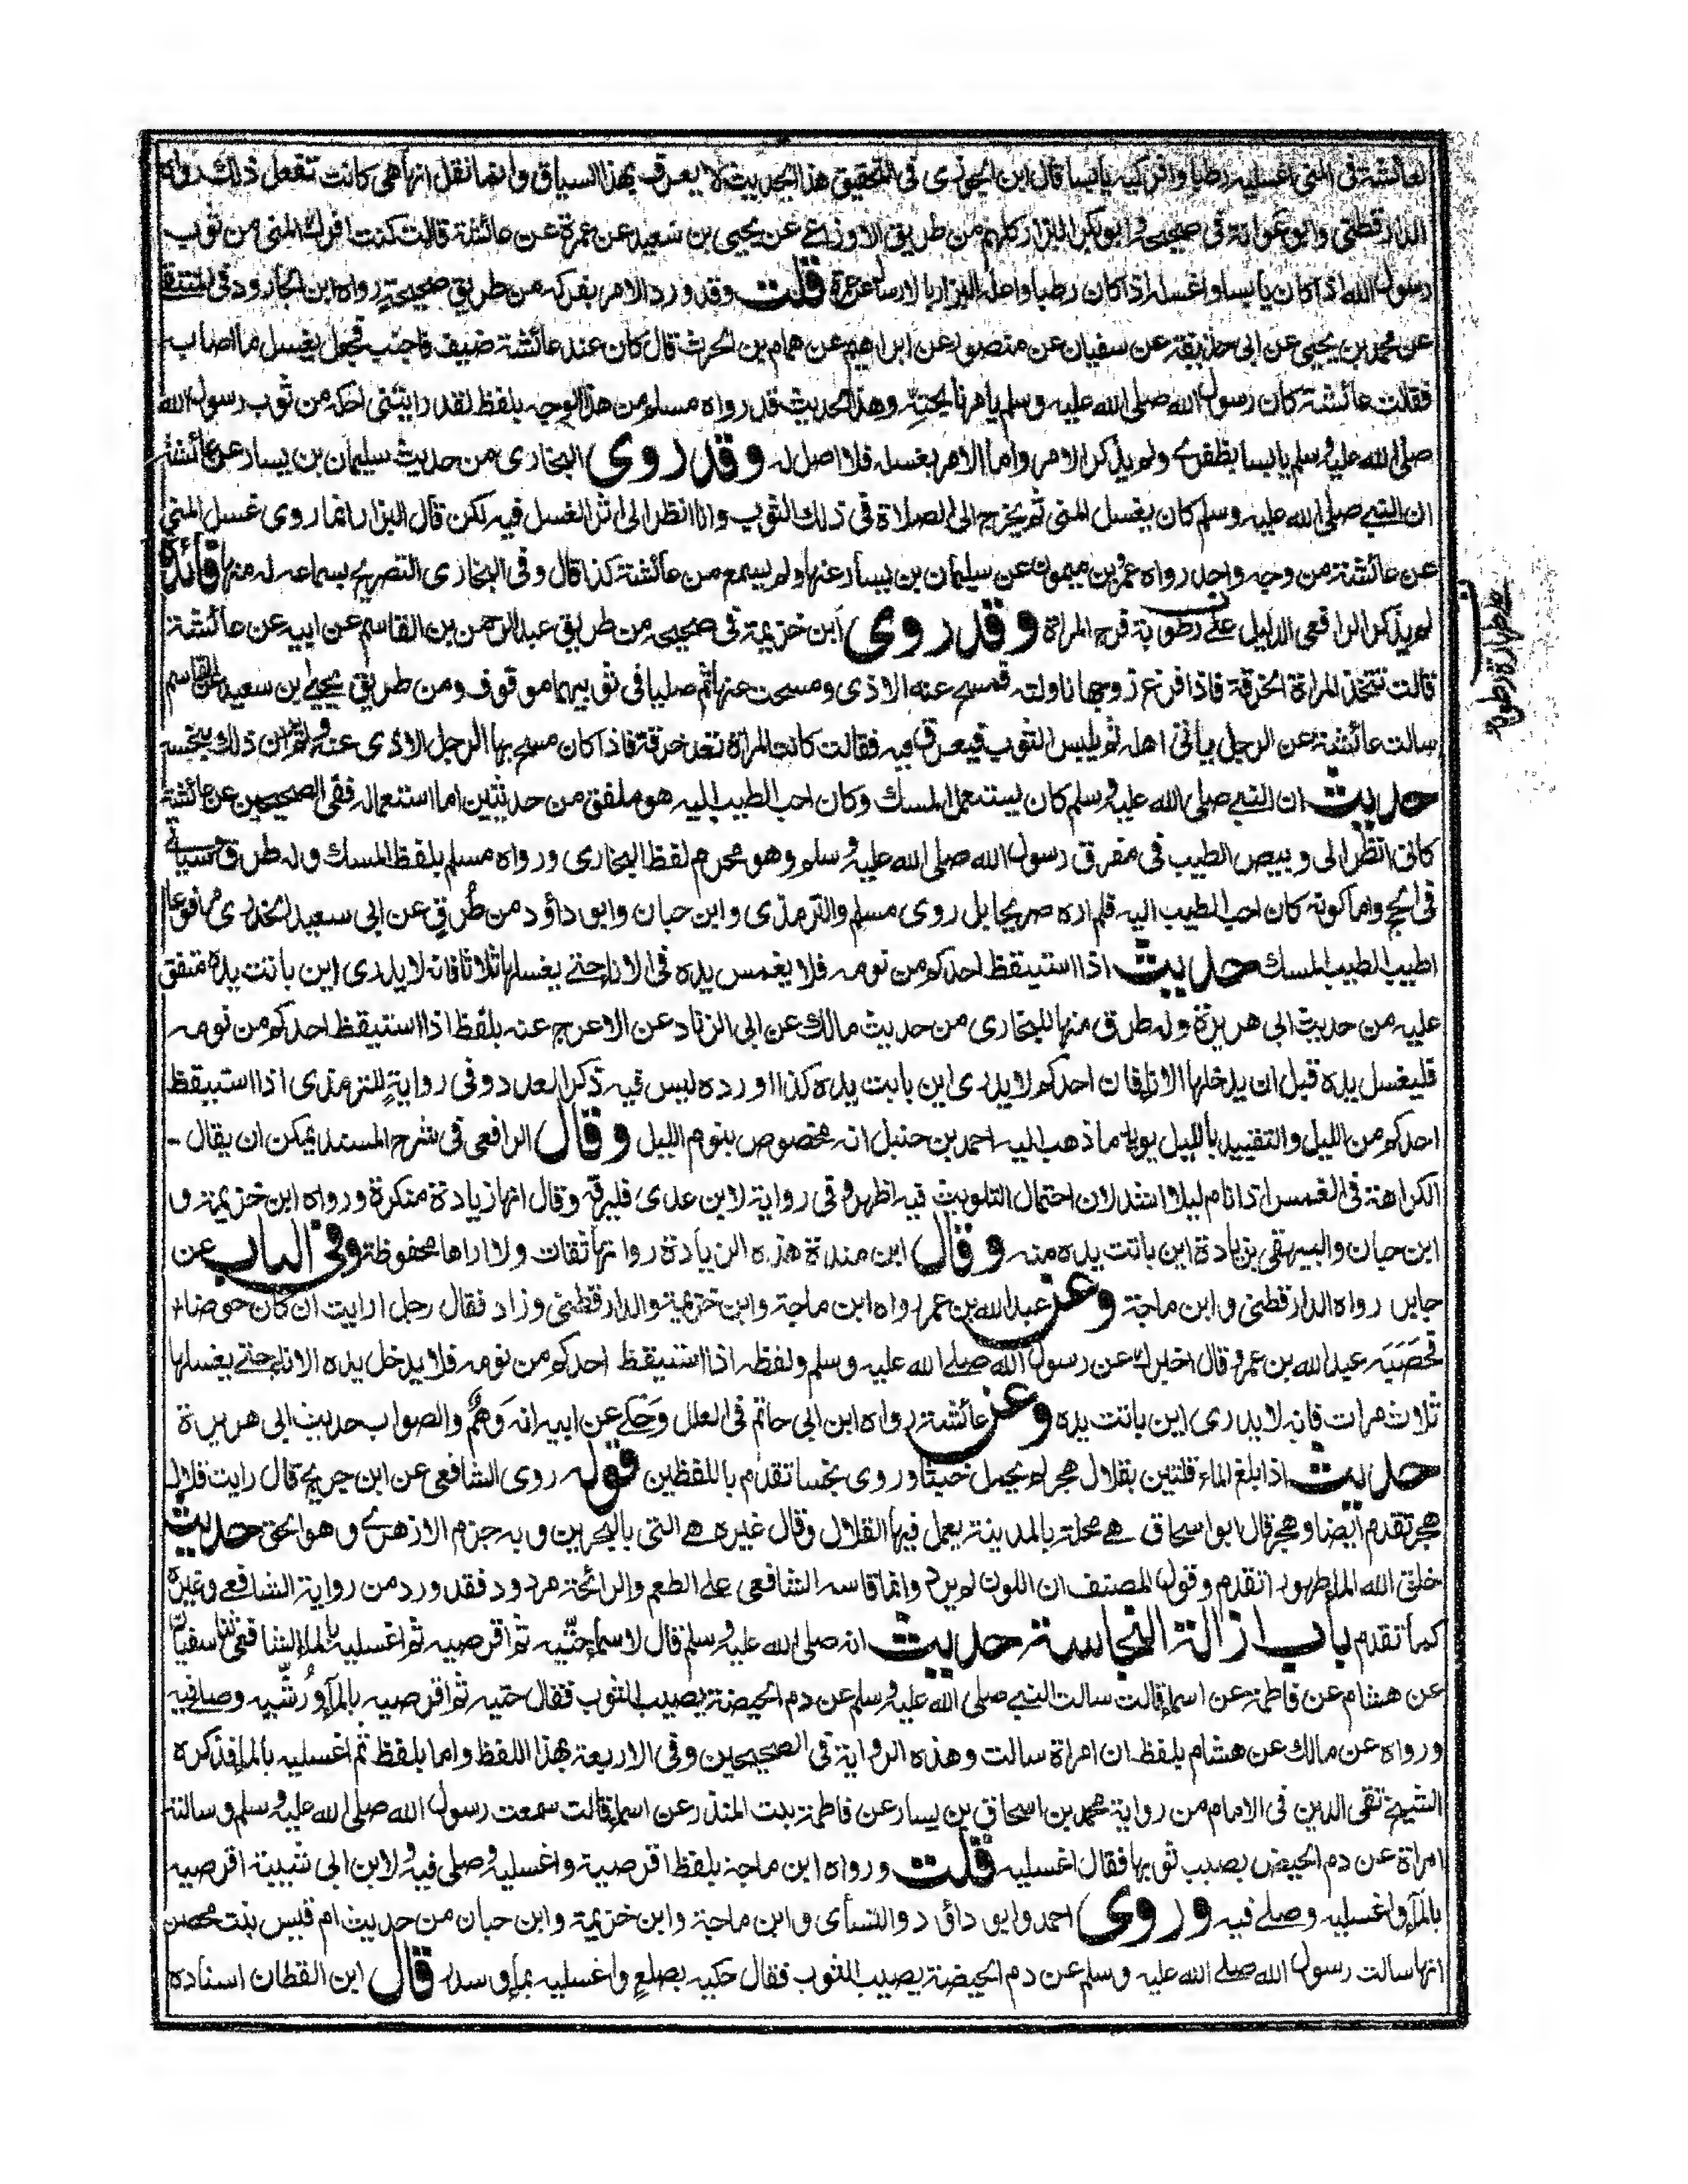 لعائشة فى المنى اغسليه رطبا وافركيه يابسا قال ابن الجوزى فى التحقيق هذا الحديث لا يعرف بهذا السياق وانما نقل انها هى كانت تفعل ذلك رواه
الدارقطنى وابو عوانة فى صحيحه وابو بكر البزار كلهم من طريق الاوزاعى عن يحيى بن سعيد عن عمرة عن عائشة قالت كنت افرك المنى من ثوب
رسول الله اذا كان يابسا واغسله اذا كان رطبا واعله البزار بالارسال عن عمرة قلت وقد ورد الامر بفركه من طريق صحيحة رواه ابن الجارود فى المنتقى
عن محمد بن يحيى عن ابى حذيفة عن سفيان عن منصور عن ابراهيم عن همام بن الحرث قال كان عند عائشة ضيف فاجنب فجعل يغسل ما اصاب
فقالت عائشة كان رسول الله صلى الله عليه وسلم يامرنا بحتّه وهذا الحديث قد رواه مسلم من هذا الوجه بلفظ لقد رايتنى احكه من ثوب رسول الله
صلى الله عليه وسلم يابسا بظفرى ولم يذكر الامر واما الامر بغسله فلا اصل له وقد روى البخارى من حديث سليمان بن يسار عن عائشة
ان النبى صلى الله عليه وسلم كان يغسل المنى ثم يخرج الى الصلاة فى ذلك الثوب وانا انظر الى اثر الغسل فيه لكن قال البزار انما روى غسل المنى
عن عائشة من وجه واحد رواه عمرو بن ميمون عن سليمان بن يسار عنها ولم يسمع من عائشة كذا قال وفى البخارى التصريح بسماعه له منها فائدة
لم يذكر الرافعى الدليل على رطوبة فرج المراة وقد روى ابن خزيمة فى صحيحه من طريق عبد الرحمن بن القاسم عن ابيه عن عائشة
قالت تتخذ المراة الخرقة فاذا فرغ زوجها ناولته فمسح عنه الاذى ومسحت عنها ثم صليا فى ثوبيهما موقوف ومن طريق يحيى بن سعيد عن القاسم
سالت عائشة عن الرجل ياتى اهله ثم يلبس الثوب فيعرق فيه فقالت كانت المراة تعد خرقة فاذا كان مسح بها الرجل الاذى عنه ولم تر ان ذلك ينجسه
حديث ان النبى صلى الله عليه وسلم كان يستعمل المسك وكان احب الطيب اليه هو ملفق من حديثين اما استعماله ففى الصحيحين عن عائشة
كانى انظر الى وبيص الطيب فى مفرق رسول الله صلى الله عليه وسلم وهو محرم لفظ البخارى ورواه مسلم بلفظ المسك وله طرق ستاتى
فى الحج واما كونه كان احب الطيب اليه فلم اره صريحا بل روى مسلم والترمذى وابن حبان وابو داؤد من طُرقٍ عن ابى سعيد الخدرى مرفوعا
اطيب الطيب المسك حديث اذا استيقظ احدكم من نومه فلا يغمس يده فى الاناء حتى يغسلها ثلاثا فانه لا يدرى اين باتت يده متفق
عليه من حديث ابى هريرة وله طرق منها للبخارى من حديث مالك عن ابى الزناد عن الاعرج عنه بلفظ اذا استيقظ احدكم من نومه
فليغسل يده قبل ان يدخلها الاناء فان احدكم لا يدرى اين باتت يده كذا اورده ليس فيه ذكر العدد وفى روايةٍ للترمذى اذا استيقظ
احدكم من الليل والتقييد بالليل يويد ما ذهب اليه احمد بن حنبل انه مخصوص بنوم الليل وقال الرافعى فى شرح المسند يمكن ان يقال
الكراهة فى الغمس اذا نام ليلا اشد لان احتمال التلويث فيه اظهر وفى رواية لابن عدى فليرقه وقال انها زيادة منكرة ورواه ابن خزيمة و
ابن حبان والبيهقى بزيادة اين باتت يده منه وقال ابن مندة هذه الزيادة رواتها ثقات ولا اراها محفوظة وفى الباب عن
جابر رواه الدارقطنى وابن ماجة وعن عبد الله بن عمر رواه ابن ماجة وابن خزيمة والدارقطنى وزاد فقال رجل ارايت ان كان حوضا
فحَصَبَه عبد الله بن عمر وقال اخبرك عن رسول الله صلى الله عليه وسلم ولفظه اذا استيقظ احدكم من نومه فلا يدخل يده الاناء حتى يغسلها
ثلاث مرات فانه لا يدرى اين باتت يده وعن عائشة رواه ابن ابى حاتم فى العلل وَحَكى عن ابيه انه وَهمٌ والصواب حديث ابى هريرة
حديث اذا بلغ الماء قلتين بقلال هجر لم يحمل خبثا وروى نجسا تقدم باللفظين قوله روى الشافعى عن ابن جريج قال رايت قلال
هجر تقدم ايضا وهجر قال ابو اسحاق هى محلة بالمدينة يعمل فيها القلال وقال غيره هى التى بالبحرين وبه جزم الازهرى وهو الحق حديث
خلق الله الماء طهورا تقدم وقول المصنف ان اللون لم يرد وانما قاسه الشافعى على الطعم والرائحة مردود فقد ورد من رواية الشافعى وغيره
كما تقدم باب ازالة النجاسة حديث انه صلى الله عليه وسلم قال لاسماء حتّيه ثم اقرصيه ثم اغسليه بالماء الشافعى ثنا سفيان
عن هشام عن فاطمة عن اسماء قالت سالت النبى صلى الله عليه وسلم عن دم الحيضة يصيب الثوب فقال حتيه ثم اقرصيه بالماء ورُشّيه وصلى فيه
ورواه عن مالك عن هشام بلفظ ان امراة سالت وهذه الرواية فى الصحيحين وفى الاربعة بهذا اللفظ واما بلفظ ثم اغسليه بالماء فذكره
الشيخ تقى الدين فى الامام من رواية محمد بن اسحاق بن يسار عن فاطمة بنت المنذر عن اسماء قالت سمعت رسول الله صلى الله عليه وسلم وسالته
امراة عن دم الحيض يصيب ثوبها فقال اغسليه قلت ورواه ابن ماجة بلفظ اقرصية واغسليه وصلى فيه ولابن ابى شيبة اقرصيه
بالماء واغسليه وصلى فيه وروى احمد وابو داؤد والنسأى وابن ماجة وابن خزيمة وابن حبان من حديث ام قيس بنت محصن
انها سالت رسول الله صلى الله عليه وسلم عن دم الحيضة يصيب الثوب فقال حكيه بصلع واغسليه بماء وسدر قال ابن القطان اسناده